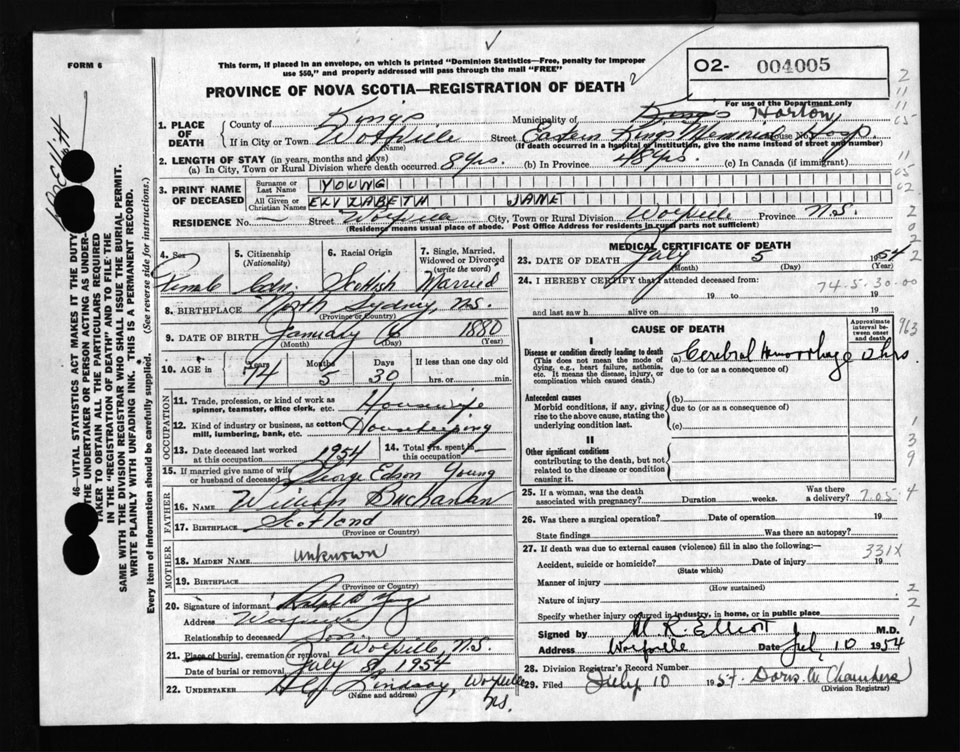 FORM 6
This form, if placed in an envelope, on which is printed "Dominion Statistics—Free, penalty for improper
use $50," and properly addressed will pass through the mail "FREE"
PROVINCE OF NOVA SCOTIA—REGISTRATION OF DEATH
02- 004005
For use of the Department only
1. PLACE OF DEATH
County of Kings Municipality of Kings Horton
If in City or Town Wolfville Street Eastern Kings Memorial House No. Hosp.
(Name) (If death occurred in a hospital or institution, give the name instead of street and number)
2. LENGTH OF STAY (in years, months and days)
(a) In City, Town or Rural Division where death occurred 8 yrs. (b) In Province 48 yrs. (c) In Canada (if immigrant)
3. PRINT NAME OF DECEASED
Surname or Last Name YOUNG
All Given or Christian Names ELIZABETH JANE
RESIDENCE No. — Street Wolfville City, Town or Rural Division Wolfville Province N.S.
(Residence means usual place of abode. Post Office Address for residents in rural parts not sufficient)
4. Sex Female
5. Citizenship (Nationality) Cdn.
6. Racial Origin Scottish
7. Single, Married, Widowed or Divorced (write the word) Married
8. BIRTHPLACE North Sydney, N.S.
(Province or Country)
9. DATE OF BIRTH January 6 1880
(Month) (Day) (Year)
10. AGE in Years 74 Months 5 Days 30 If less than one day old
hrs. or min.
OCCUPATION
11. Trade, profession, or kind of work as
spinner, teamster, office clerk, etc. Housewife
12. Kind of industry or business, as cotton
mill, lumbering, bank, etc. Housekeeping
13. Date deceased last worked at this occupation 1954
14. Total yrs. spent in this occupation
15. If married give name of wife
or husband of deceased George Edson Young
FATHER
16. NAME William Buchanan
17. BIRTHPLACE Scotland
(Province or Country)
MOTHER
18. MAIDEN NAME unknown
19. BIRTHPLACE
(Province or Country)
20. Signature of informant Ralph B Young
Address Wolfville
Relationship to deceased Son
21. Place of burial, cremation or removal Wolfville, N.S.
Date of burial or removal July 8, 1954
22. UNDERTAKER Lindsay, Wolfville
N.S.
(Name and address)
MEDICAL CERTIFICATE OF DEATH
23. DATE OF DEATH July 5 1954
(Month) (Day) (Year)
24. I HEREBY CERTIFY that I attended deceased from:
74-5-30-00
19 to 19
and last saw h alive on 19
CAUSE OF DEATH
Approximate interval between onset and death
963
I
Disease or condition directly leading to death
(This does not mean the mode of
dying, e.g., heart failure, asthenia,
etc. It means the disease, injury, or
complication which caused death.)
(a) Cerebral Hemorrhage 12 hrs.
due to (or as a consequence of)
Antecedent causes
Morbid conditions, if any, giving
rise to the above cause, stating the
underlying condition last.
(b)
due to (or as a consequence of)
(c)
II
Other significant conditions
contributing to the death, but not
related to the disease or condition
causing it.
25. If a woman, was the death
associated with pregnancy? Duration weeks. Was there a delivery? 7.05
26. Was there a surgical operation? Date of operation 19
State findings Was there an autopsy?
27. If death was due to external causes (violence) fill in also the following:—
331X
Accident, suicide or homicide? Date of injury 19
(State which)
Manner of injury
(How sustained)
Nature of injury
Specify whether injury occurred in industry, in home, or in public place
Signed by M. R. Elliott M.D.
Address Wolfville Date Jul, 10 1954
28. Division Registrar's Record Number
29. Filed July 10 1954 Doris W Chambers
(Division Registrar)
46—VITAL STATISTICS ACT MAKES IT THE DUTY
THE UNDERTAKER OR PERSON ACTING AS UNDER-
TAKER TO OBTAIN ALL THE PARTICULARS REQUIRED
IN THE "REGISTRATION OF DEATH" AND TO FILE THE
SAME WITH THE DIVISION REGISTRAR WHO SHALL ISSUE THE BURIAL PERMIT.
WRITE PLAINLY WITH UNFADING INK. THIS IS A PERMANENT RECORD.
Every item of information should be carefully supplied. (See reverse side for instructions.)